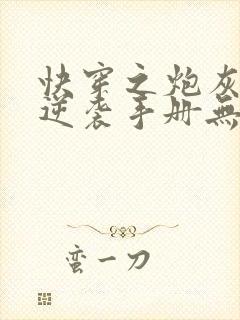 快穿之炮灰
逆袭手册無
蛮一刀